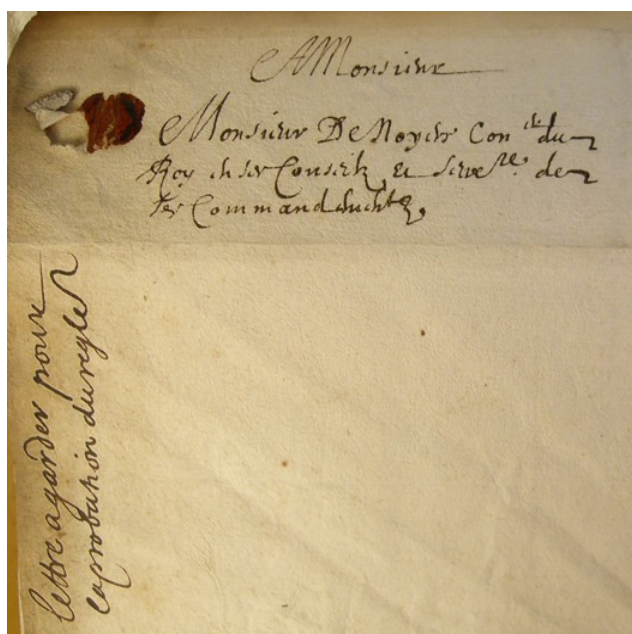 A Monsieur
Monsieur De Noyers Con.er du
Roy en ses Conseilz et Secre.re de
ses Commandementz,
lettre agarder pour
laprobation du regle